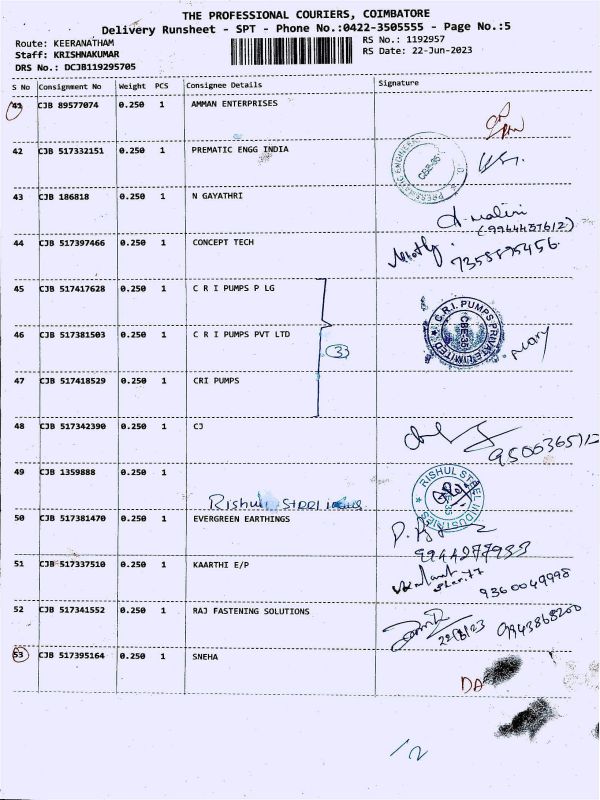 THE PROFESSIONAL COURIERS, COIMBATORE
Delivery Runsheet - SPT - Phone No.:0422-3505555 - Page No.:5
Route: KEERANATHAM
RS No.: 1192957
Staff: KRISHNAKUMAR
RS Date: 22-Jun-2023
DRS No.: DCJB119295705
S No Consignment No Weight PCS Consignee Details Signature
41 CJB 89577074 0.250 1 AMMAN ENTERPRISES
42 CJB 517332151 0.250 1 PREMATIC ENGG INDIA
CBE-35
43 CJB 186818 0.250 1 N GAYATHRI
(9944437612)
44 CJB 517397466 0.250 1 CONCEPT TECH
7358895456
45 CJB 517417628 0.250 1 C R I PUMPS P LG
C.R.I. PUMPS PRIVATE LIMITED
CBE-35
46 CJB 517381503 0.250 1 C R I PUMPS PVT LTD
3
47 CJB 517418529 0.250 1 CRI PUMPS
48 CJB 517342390 0.250 1 CJ
49 CJB 1359888 0.250 1
RISHUL STEEL INDUSTRIES
Rishul
50 CJB 517381470 0.250 1 EVERGREEN EARTHINGS
9944277933
51 CJB 517337510 0.250 1 KAARTHI E/P
9360049998
52 CJB 517341552 0.250 1 RAJ FASTENING SOLUTIONS
22/6/23 9943868200
53 CJB 517395164 0.250 1 SNEHA
DA